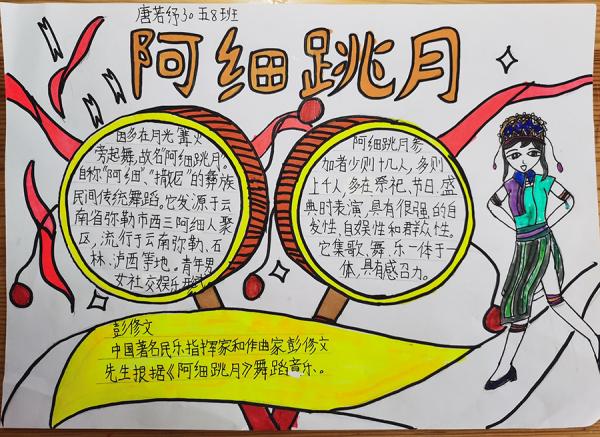 唐若纾30 五8班
阿细跳月
因多在月光、篝火
旁起舞,故名“阿细跳月”。
自称“阿细”、“撒尼”的彝族
民间传统舞蹈。它发源于云
南省弥勒市西三阿细人聚
区,流行于云南弥勒、石
林、泸西等地。青年男
女社交娱乐形式
阿细跳月参
加者少则十几人,多则
上千人,多在祭祀、节日、盛
典时表演,具有很强的自
发性、自娱性和群众性。
它集歌、舞、乐一体于一
体,具有感召力。
彭修文
中国著名民乐指挥家和作曲家彭修文
先生根据《阿细跳月》舞蹈音乐。